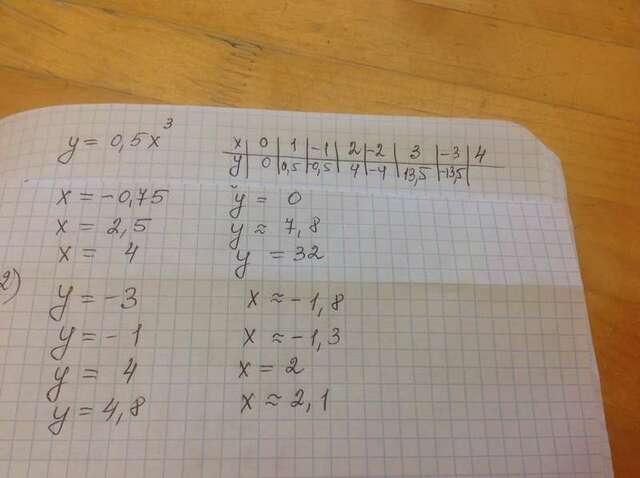 y = 0,5x³
x | 0 | 1 | -1 | 2 | -2 | 3 | -3 | 4
y | 0 | 0,5 | -0,5 | 4 | -4 | 13,5 | -13,5 |
x = -0,75 y = 0
x = 2,5 y ≈ 7,8
x = 4 y = 32
2)
y = -3 x ≈ -1,8
y = -1 x ≈ -1,3
y = 4 x = 2
y = 4,8 x ≈ 2,1